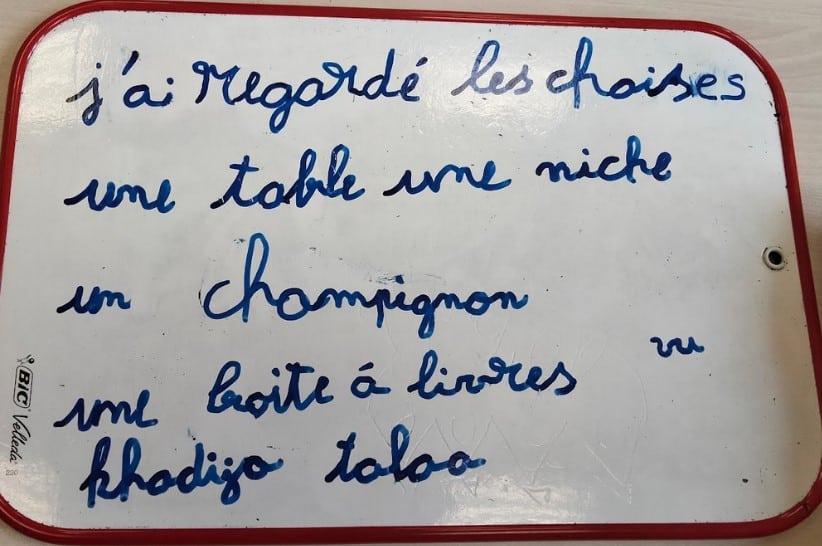 j'ai regardé les chaises
une table une niche
un champignon
vu
une boîte à livres
khadija talaa
BIC Velleda